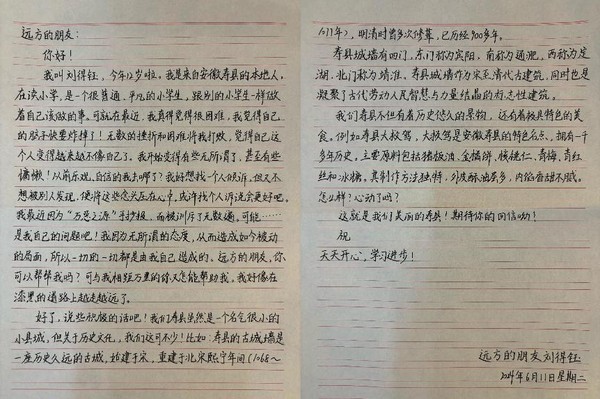 远方的朋友:
你好!
我叫刘得钰,今年12岁啦,我是来自安徽寿县的本地人,
在读小学,是一个很普通、平凡的小学生,跟别的小学生一样做
着自己该做的事。可就在最近,我真得觉得很困难,我觉得自己
的脑子快要炸掉了!无数的挫折和困难将我打败,觉得自己这
个人变得越来越不像自己了。我开始变得有些无所谓了,甚至有些
慵懒!从前乐观、自信的我去哪了?我好想找一个人倾诉,但又不
想被别人发现,便将这些念头压在心中,或许找个人诉说会更好吧。
我最近因为“万恶之源”手抄报,而被训斥了无数遍,可能……
是我自己的问题吧!我因为无所谓的态度,从而造成如今被动
的局面,所以一切的一切都是由我自己造成的。远方的朋友,你
可以帮帮我吗?可与我相距万里的你又怎能帮助我,我好像在
漆黑的道路上越走越远了。
好了,说些积极的话吧!我们寿县虽然是一个名气很小的
小县城,但关于历史文化,我们这可不少!比如:寿县的古城墙是
一座历史久远的古城,始建于宋,重建于北宋熙宁年间(1068~
1077年),明清时曾多次修葺,已历经900多年。
寿县城墙有四门,东门称为宾阳,南称为通淝,西称为定
湖,北门称为靖淮。寿县城墙作为宋至清代古建筑,同时也是
凝聚了古代劳动人民智慧与力量结晶的标志性建筑。
我们寿县不但有着历史悠久的景物,还有着极具特色的美
食。例如寿县大救驾,大救驾是安徽寿县的特色名点,拥有一千
多年历史,主要原料包括猪板油、金橘饼、核桃仁、青梅、青红
丝和冰糖。其制作方法独特,外皮酥油层多,内馅香甜不腻。
怎么样?心动了吗?
这就是我们美丽的寿县!期待你的回信呦!
祝
天天开心,学习进步!
远方的朋友刘得钰
2024年6月11日星期二